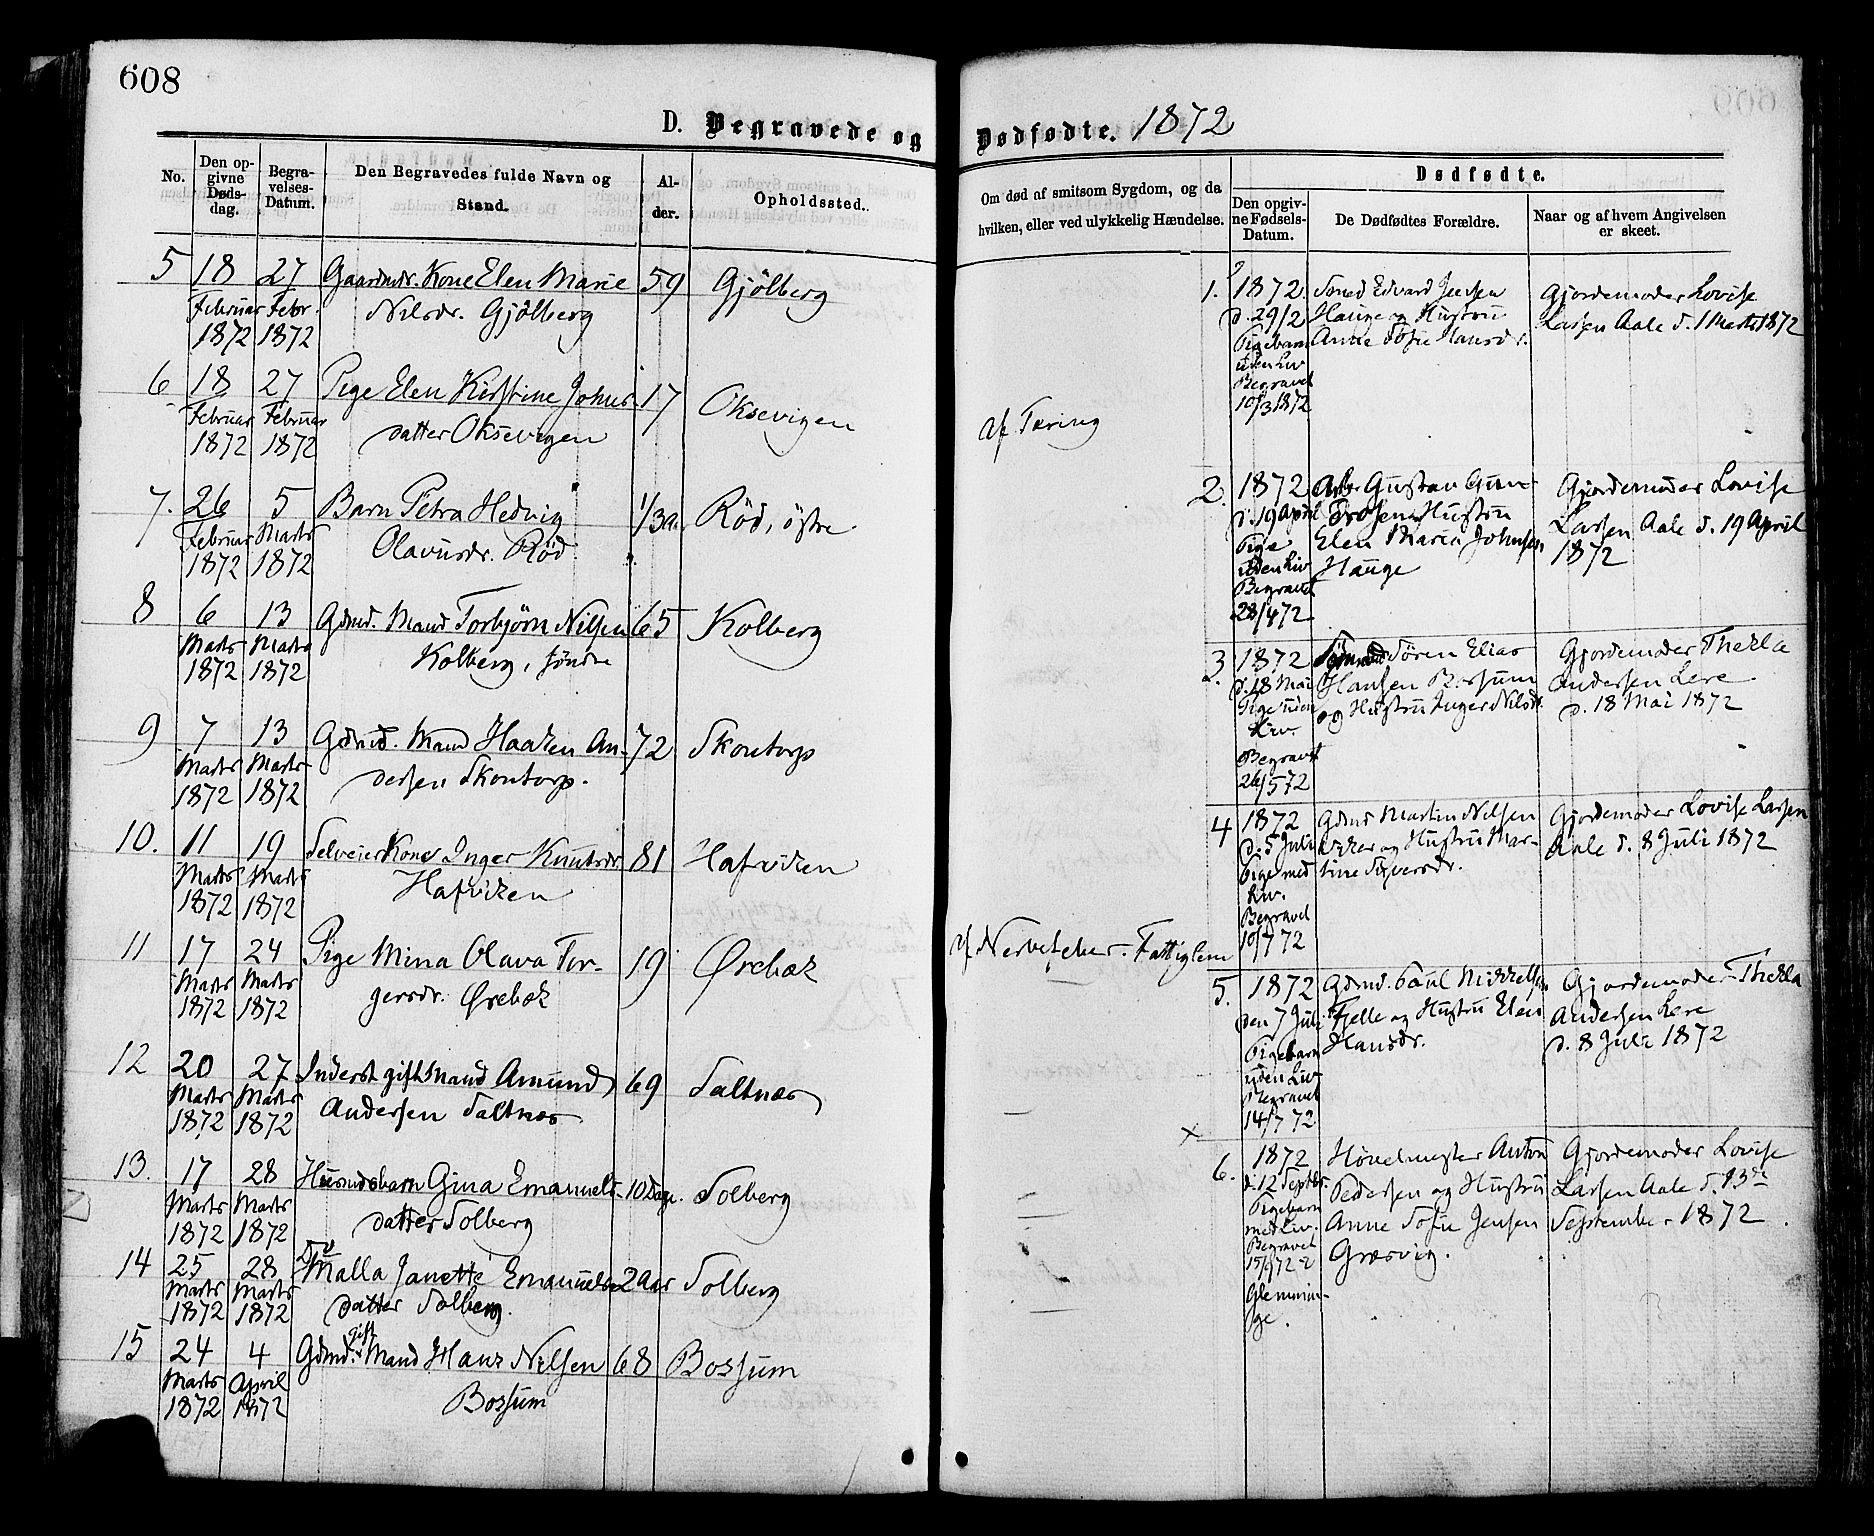 608
D. Begravede og
No.
Den opgivne Dødsdag.
Begravelses-Datum.
Den Begravedes fulde Navn og Stand.
Alder.
Opholdssted.
5 18 27 Gaardmdr. Kone Elen Marie 59 Gjölberg
Februar Febr. Nilsdr. Gjölberg
1872 1872
6 18 27 Pige Elen Kirstine Johns- 17 Oksevigen
Februar Februar datter Oksevigen
1872 1872
7. 26 5 Barn Petra Hedvig 1/3 a. Röd, östre
Februar Marts Olavusdr. Röd
1872 1872
8 6 13 Gdmd. Mand Torbjörn Nilsen 65 Kolberg
Marts Marts Kolberg, söndre
1872 1872
9 7 13 Gdmd. Mand Haaken An- 72 Skontorp
Marts Marts dersen Skontorp.
1872 1872
10. 11 19 Selveier Kone Inger Knutsdr. 81 Hafviken
Marts Marts Hafviken
1872 1872
11 17 24 Pige Mina Olava Tor- 19 Ørebæk
Marts Marts gersdr. Ørebæk
1872 1872
12 20 27 Inderst gift Mand Amund 69 Saltnæs
Marts Marts Andersen Saltnæs
1872 1872
13. 17 28 Husmdsbarn Gina Emanuels- 10 Dage. Solberg
Marts Marts datter Solberg
1872 1872
14 25 28 Malla Janette Emanuels- 2 Aar Solberg
Marts Marts datter Solberg.
1872 1872
15 24 4 Gdmd. gift Mand Hans Nilsen 68 Bossum
Marts April Bossum
1872 1872
Dødfødte. 1872
Om død af smitsom Sygdom, og da
hvilken, eller ved ulykkelig Hændelse.
Dødfødte.
Den opgivne Fødsels-Datum.
De Dødfødtes Forældre.
Naar og af hvem Angivelsen er skeet.
af Tæring
af Nervefeber - Fattiglem
1. 1872 Smed Edvard Jensen Gjordemoder Lovise
d. 29/2 Hauge og Hustru Larsen Aale d. 1 Marts 1872
Pigebarn Anne Sofie Hansdr.
uden Liv
Begravet
10/3 1872
2. 1872 Arb. Gustav Gun- Gjordemoder Lovise
d. 19 April Hustru Larsen Aale d. 19 April
Pige Elen Maria Johnsen 1872
uden Liv Hauge
Begravet
28/4 72
3. 1872 Sören Elias Gjordemoder Thekla
d. 18 Mai Hansen Bossum Andersen Lere
Pige uden og Hustru Inger Nilsdr. d. 18 Mai 1872
Liv.
Begravet
26/5 72
4 1872 Gdmd Martin Nilsen Gjordemoder Lovise Larsen
d. 5 Juli Viker og Hustru Mar- Aale d. 8 Juli 1872
Pige med tine Sigversdr.
Liv.
Begravet
10/7 72
5. 1872 Gdmd. Paul Mikkelsen Gjordemoder Thekla
den 7 Juli Fjelle og Hustru Elen Andersen Lere
Pigebarn Hansdr. d. 8 Juli 1872
uden Liv
Begravet
14/7 72
6. 1872 Høvelmester Anton Gjordemoder Lovise
d. 12 Septbr. Pedersen og Hustru Larsen Aale d. 13de
Pigebarn Anne Sofie Jensen September 1872
med Liv. Græsvig.
Begravet
15/9 72
Glemmin-
ge.